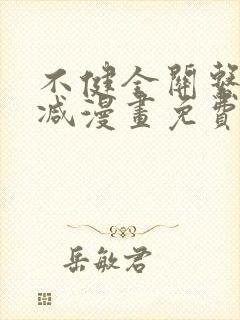 不健全關繫
減漫畫免費
岳敏君